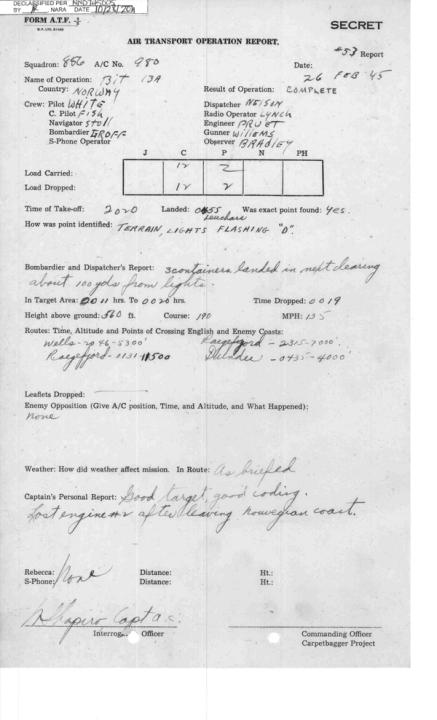 DECLASSIFIED PER NND
BY NARA DATE 10/23/
FORM A.T.F. 1/2
SECRET
AIR TRANSPORT OPERATION REPORT.
#53 Report
Squadron: 856 A/C No. 980 Date:
26 FEB '45
Name of Operation: BIT 13A
Country: NORWAY Result of Operation: COMPLETE
Crew: Pilot WHITE Dispatcher NELSON
C. Pilot FISH Radio Operator LYNCH
Navigator STOLL Engineer PRUET
Bombardier GROFF Gunner WILLEMS
S-Phone Operator Observer BRADLEY
J C P N PH
Load Carried: 12 2
Load Dropped: 12 2
Time of Take-off: 2020 Landed: 0455 Was exact point found: Yes.
Leuchars
How was point identified: TERRAIN, LIGHTS FLASHING "D".
Bombardier and Dispatcher's Report: 3 containers landed in next clearing
about 100 yds from lights.
In Target Area: 0011 hrs. To 0020 hrs. Time Dropped: 0019
Height above ground: 560 ft. Course: 190 MPH: 135
Routes: Time, Altitude and Points of Crossing English and Enemy Coasts:
Wells - 2046 - 5300' - 2315 - 7000'.
- 0131 - 11500 Dundee - 0435 - 4000'
Leaflets Dropped:
Enemy Opposition (Give A/C position, Time, and Altitude, and What Happened):
None
Weather: How did weather affect mission. In Route: As briefed
Captain's Personal Report: Good target, good coding.
Lost engine #2 after leaving Norwegian coast.
Rebecca: None Distance: Ht.:
S-Phone: Distance: Ht.:
Shapiro Capt a.c.
Interrog. Officer Commanding Officer
Carpetbagger Project